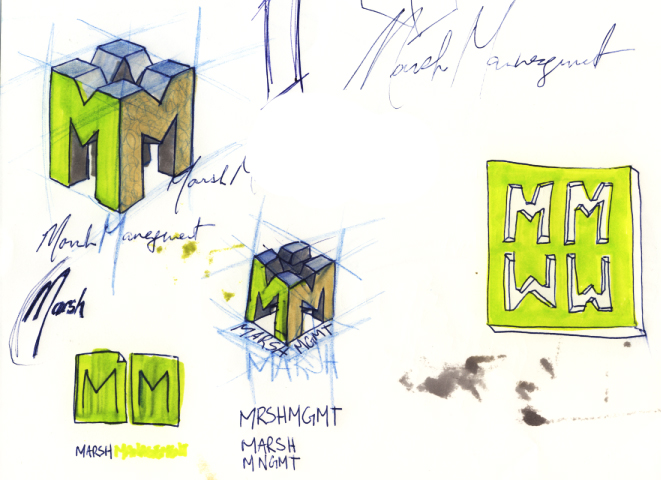 Marsh Manegment
M M
Marsh M
Marsh Manegment
M M
M M
W W
Marsh
M M
MARSH MGMT
MARSH
M M
MRSHMGMT
MARSH MANAGEMENT
MARSH
MNGMT